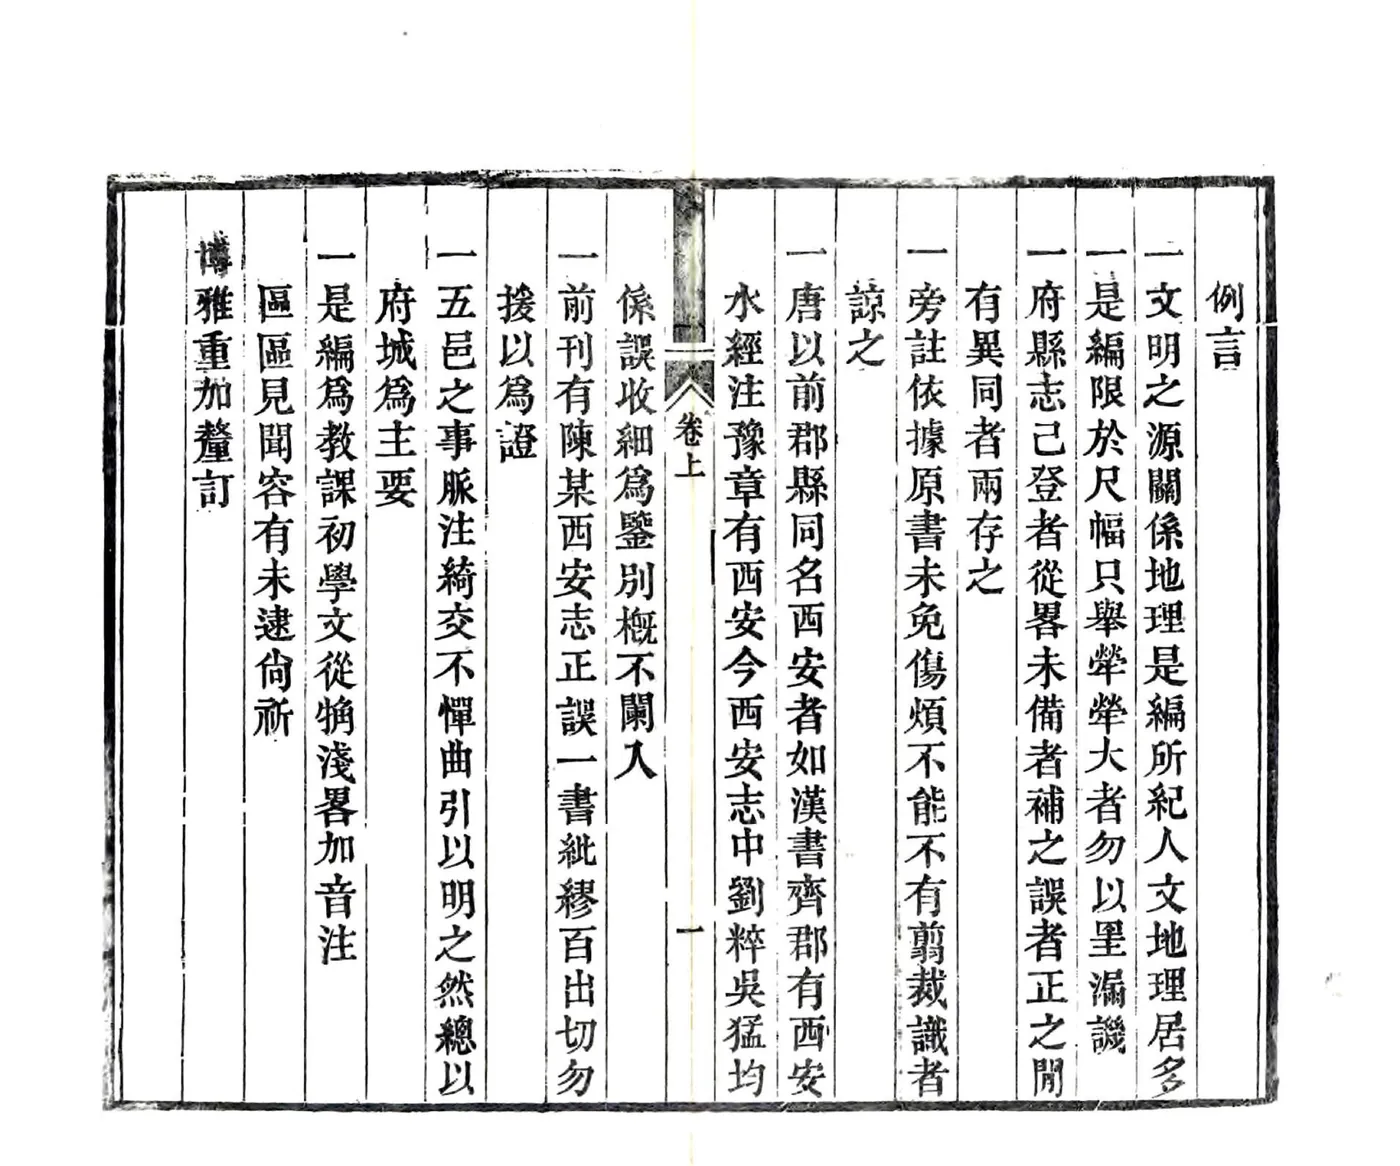 例言
一文明之源關係地理是編所紀人文地理居多
一是編限於尺幅只舉犖犖大者勿以罣漏譏
一府縣志已登者從畧未備者補之誤者正之閒
有異同者兩存之
一旁註依據原書未免傷煩不能不有翦裁識者
諒之
一唐以前郡縣同名西安者如漢書齊郡有西安
水經注豫章有西安今西安志中劉粹吳猛均
係誤收細爲鑒別概不闌入
卷上
一
一前刊有陳某西安志正誤一書紕繆百出切勿
援以爲證
一五邑之事脈注綺交不憚曲引以明之然總以
府城爲主要
一是編爲教課初學文從觕淺畧加音注
區區見聞容有未逮尙祈
博雅重加釐訂